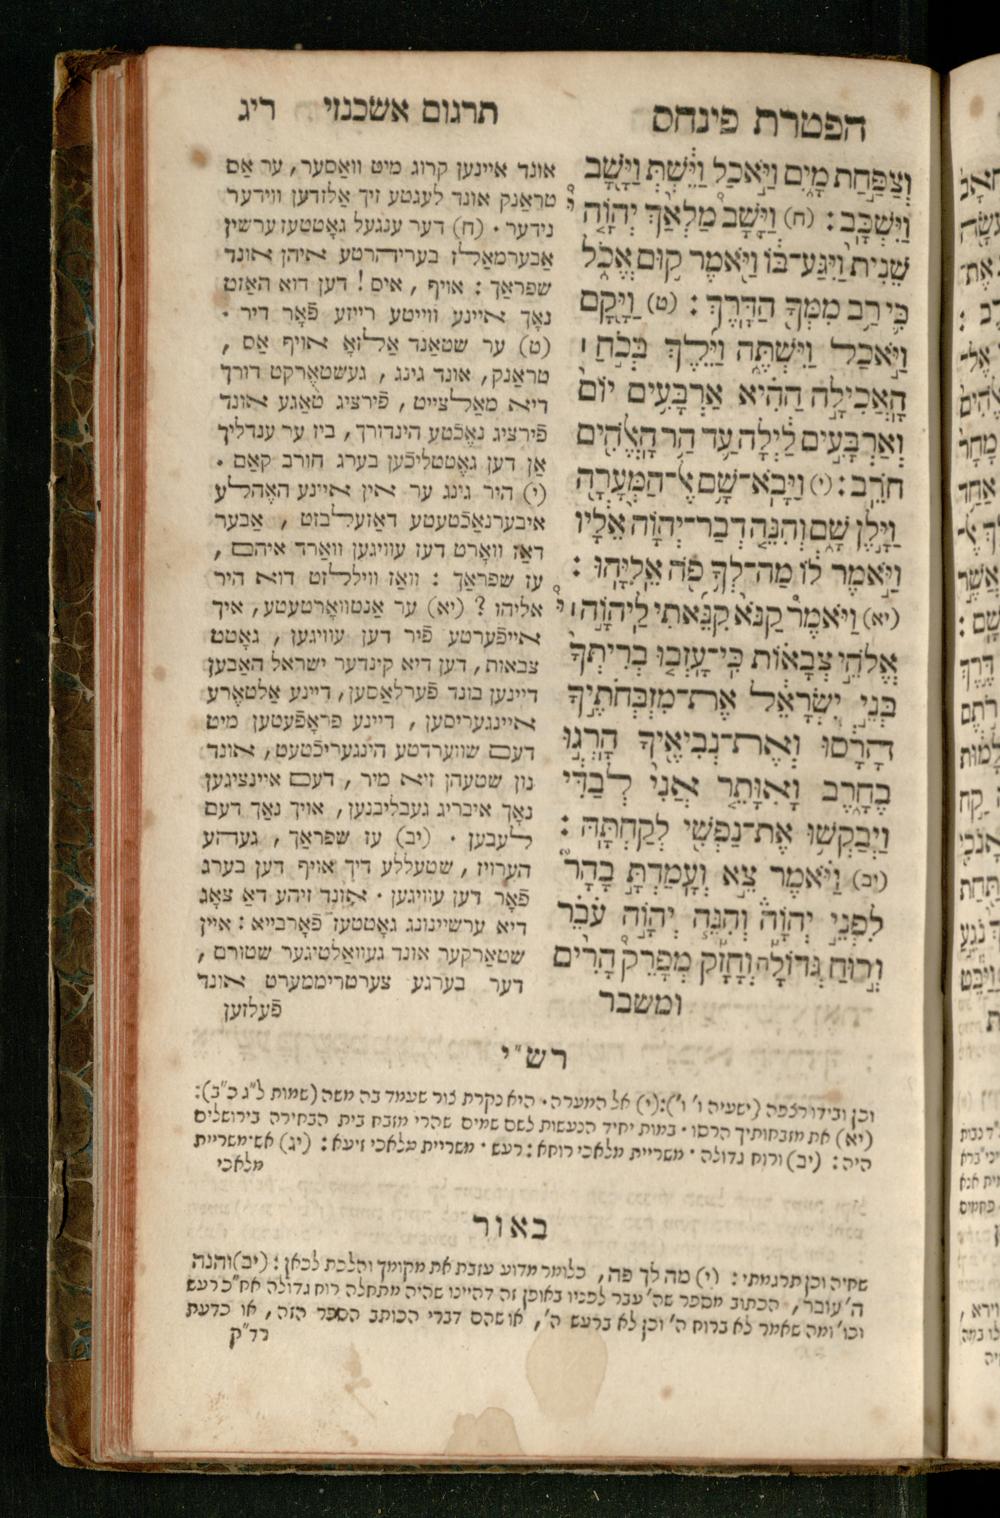 הפטרת פינחס
תרגום אשכנזי
ריג
וְצַפַּחַת מָיִם וַיֹּאכַל וַיֵּשְׁתְּ וַיָּשָׁב
וַיִּשְׁכָּב׃ (ח) וַיָּשָׁב מַלְאַךְ יְהֹוָה
שֵׁנִית וַיִּגַּע־בּוֹ וַיֹּאמֶר קוּם אֱכֹל
כִּי רַב מִמְּךָ הַדָּרֶךְ׃ (ט) וַיָּקָם
וַיֹּאכַל וַיִּשְׁתֶּה וַיֵּלֶךְ בְּכֹחַ ׀
הָאֲכִילָה הַהִיא אַרְבָּעִים יוֹם
וְאַרְבָּעִים לַיְלָה עַד הַר הָאֱלֹהִים
חֹרֵב׃ (י) וַיָּבֹא־שָׁם אֶל־הַמְּעָרָה
וַיָּלֶן שָׁם וְהִנֵּה דְבַר־יְהֹוָה אֵלָיו
וַיֹּאמֶר לוֹ מַה־לְּךָ פֹה אֵלִיָּהוּ׃
(יא) וַיֹּאמֶר קַנֹּא קִנֵּאתִי לַיהֹוָה ׀
אֱלֹהֵי צְבָאוֹת כִּי־עָזְבוּ בְרִיתְךָ
בְּנֵי יִשְׂרָאֵל אֶת־מִזְבְּחֹתֶיךָ
הָרָסוּ וְאֶת־נְבִיאֶיךָ הָרְגוּ
בֶחָרֶב וָאִוָּתֵר אֲנִי לְבַדִּי
וַיְבַקְשׁוּ אֶת־נַפְשִׁי לְקַחְתָּהּ׃
(יב) וַיֹּאמֶר צֵא וְעָמַדְתָּ בָהָר
לִפְנֵי יְהֹוָה וְהִנֵּה יְהֹוָה עֹבֵר
וְרוּחַ גְּדוֹלָה וְחָזָק מְפָרֵק הָרִים
ומשבר
אונד איינען קרוג מיט וואַסער, ער אַס
טראַנק אונד לעגטע זיך אַלזדען ווידער
נידער. (ח) דער ענגעל גאָטטעז ערשין
אַבערמאַלז בערידהרטע איהן אונד
שפראַך : אויף , איס ! דען דוא האַזט
נאָך איינע ווייטע רייזע פֿאָר דיר .
(ט) ער שטאַנד אַלזאָ אויף אַס ,
טראַנק, אונד גינג , געשטאֶרקט דורך
דיא מאַלצייט, פֿירציג טאַגע אונד
פֿירציג נאֶכֿטע הינדורך, ביז ער ענדליך
אָן דען גאֶטטליכֿען בערג חורב קאַם .
(י) היר גינג ער אין איינע האֶהלע
איבערנאַכֿטעטע דאַזעלבזט , אַבער
דאַז וואָרט דעז עוויגען וואַרד איהם ,
עז שפראַך : וואַז ווילללזט דוא היר
אליהו ? (יא) ער אַנטוואָרטעטע, איך
אייפֿערטע פֿיר דען עוויגען , גאָטט
צבאות, דען דיא קינדער ישראל האַבען
דיינען בונד פֿערלאַסען, דיינע אַלטאֶרע
איינגעריסען , דיינע פראָפֿעטען מיט
דעם שווערדטע הינגעריכֿטעט, אונד
נון שטעהן זיא מיר , דעם איינציגען
נאָך איבריג געבליבנען, אויך נאָך דעם
לעבען . (יב) עז שפראַך , געהע
הערויז , שטעללע דיך אויף דען בערג
פֿאָר דען עוויגען . אונד זיהע דאַ צאָג
דיא ערשיינונג גאָטטעז פֿאָרבייא : איין
שטאַרקער אונד געוואַלטיגער שטורם ,
דער בערגע צערטרימטערט אונד
פֿעלזען
רש״י
וכן ובידו רצפה (ישעיה ו׳ ו׳): (י) אל המערה. היא נקרת צור שעמד בה משה (שמות ל״ג כ״ב):
(יא) את מזבחותיך הרסו. במות יחיד הנעשות לשם שמים שהרי מזבח בית הבחירה בירושלים
היה : (יב) ורוח גדולה. משריית מלאכי רוחא : רעש. משריית מלאכי זיעא : (יג) אש משריית
מלאכי
באור
שחיה וכן תרגמתי : (י) מה לך פה, כלומר מדוע עזבת את מקומך והלכת לכאן : (יב) והנה
ה׳ עובר, הכתוב מספר שה׳ עבר לפניו באופן זה דהיינו שהיה מתחלה רוח גדולה אח״כ רעש
וכו׳ ומה שאמר לא ברוח ה׳ וכן לא ברעש ה׳, או שהם דברי הכותב הספר הזה, או כדעת
רד״ק